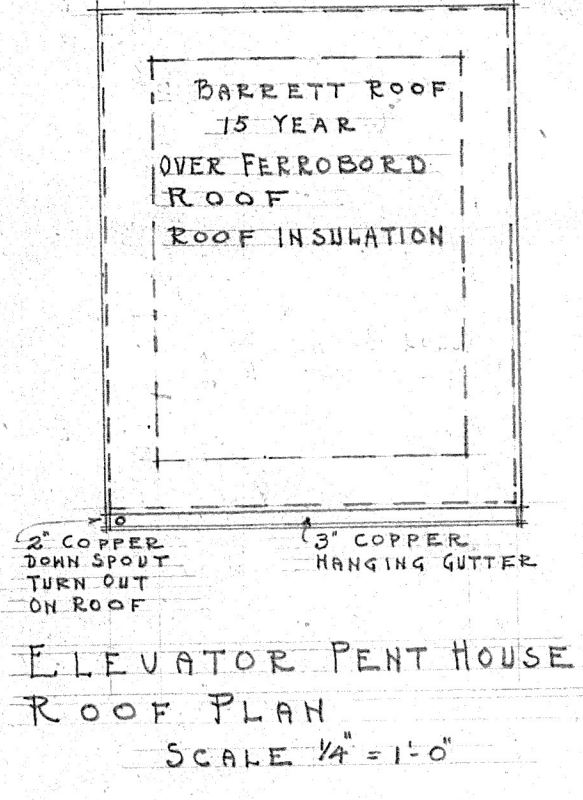 BARRETT ROOF
15 YEAR
OVER FERROBORD
ROOF
ROOF INSULATION
2" COPPER
DOWN SPOUT
TURN OUT
ON ROOF
3" COPPER
HANGING GUTTER
ELEVATOR PENT HOUSE
ROOF PLAN
SCALE 1/4" = 1'-0"